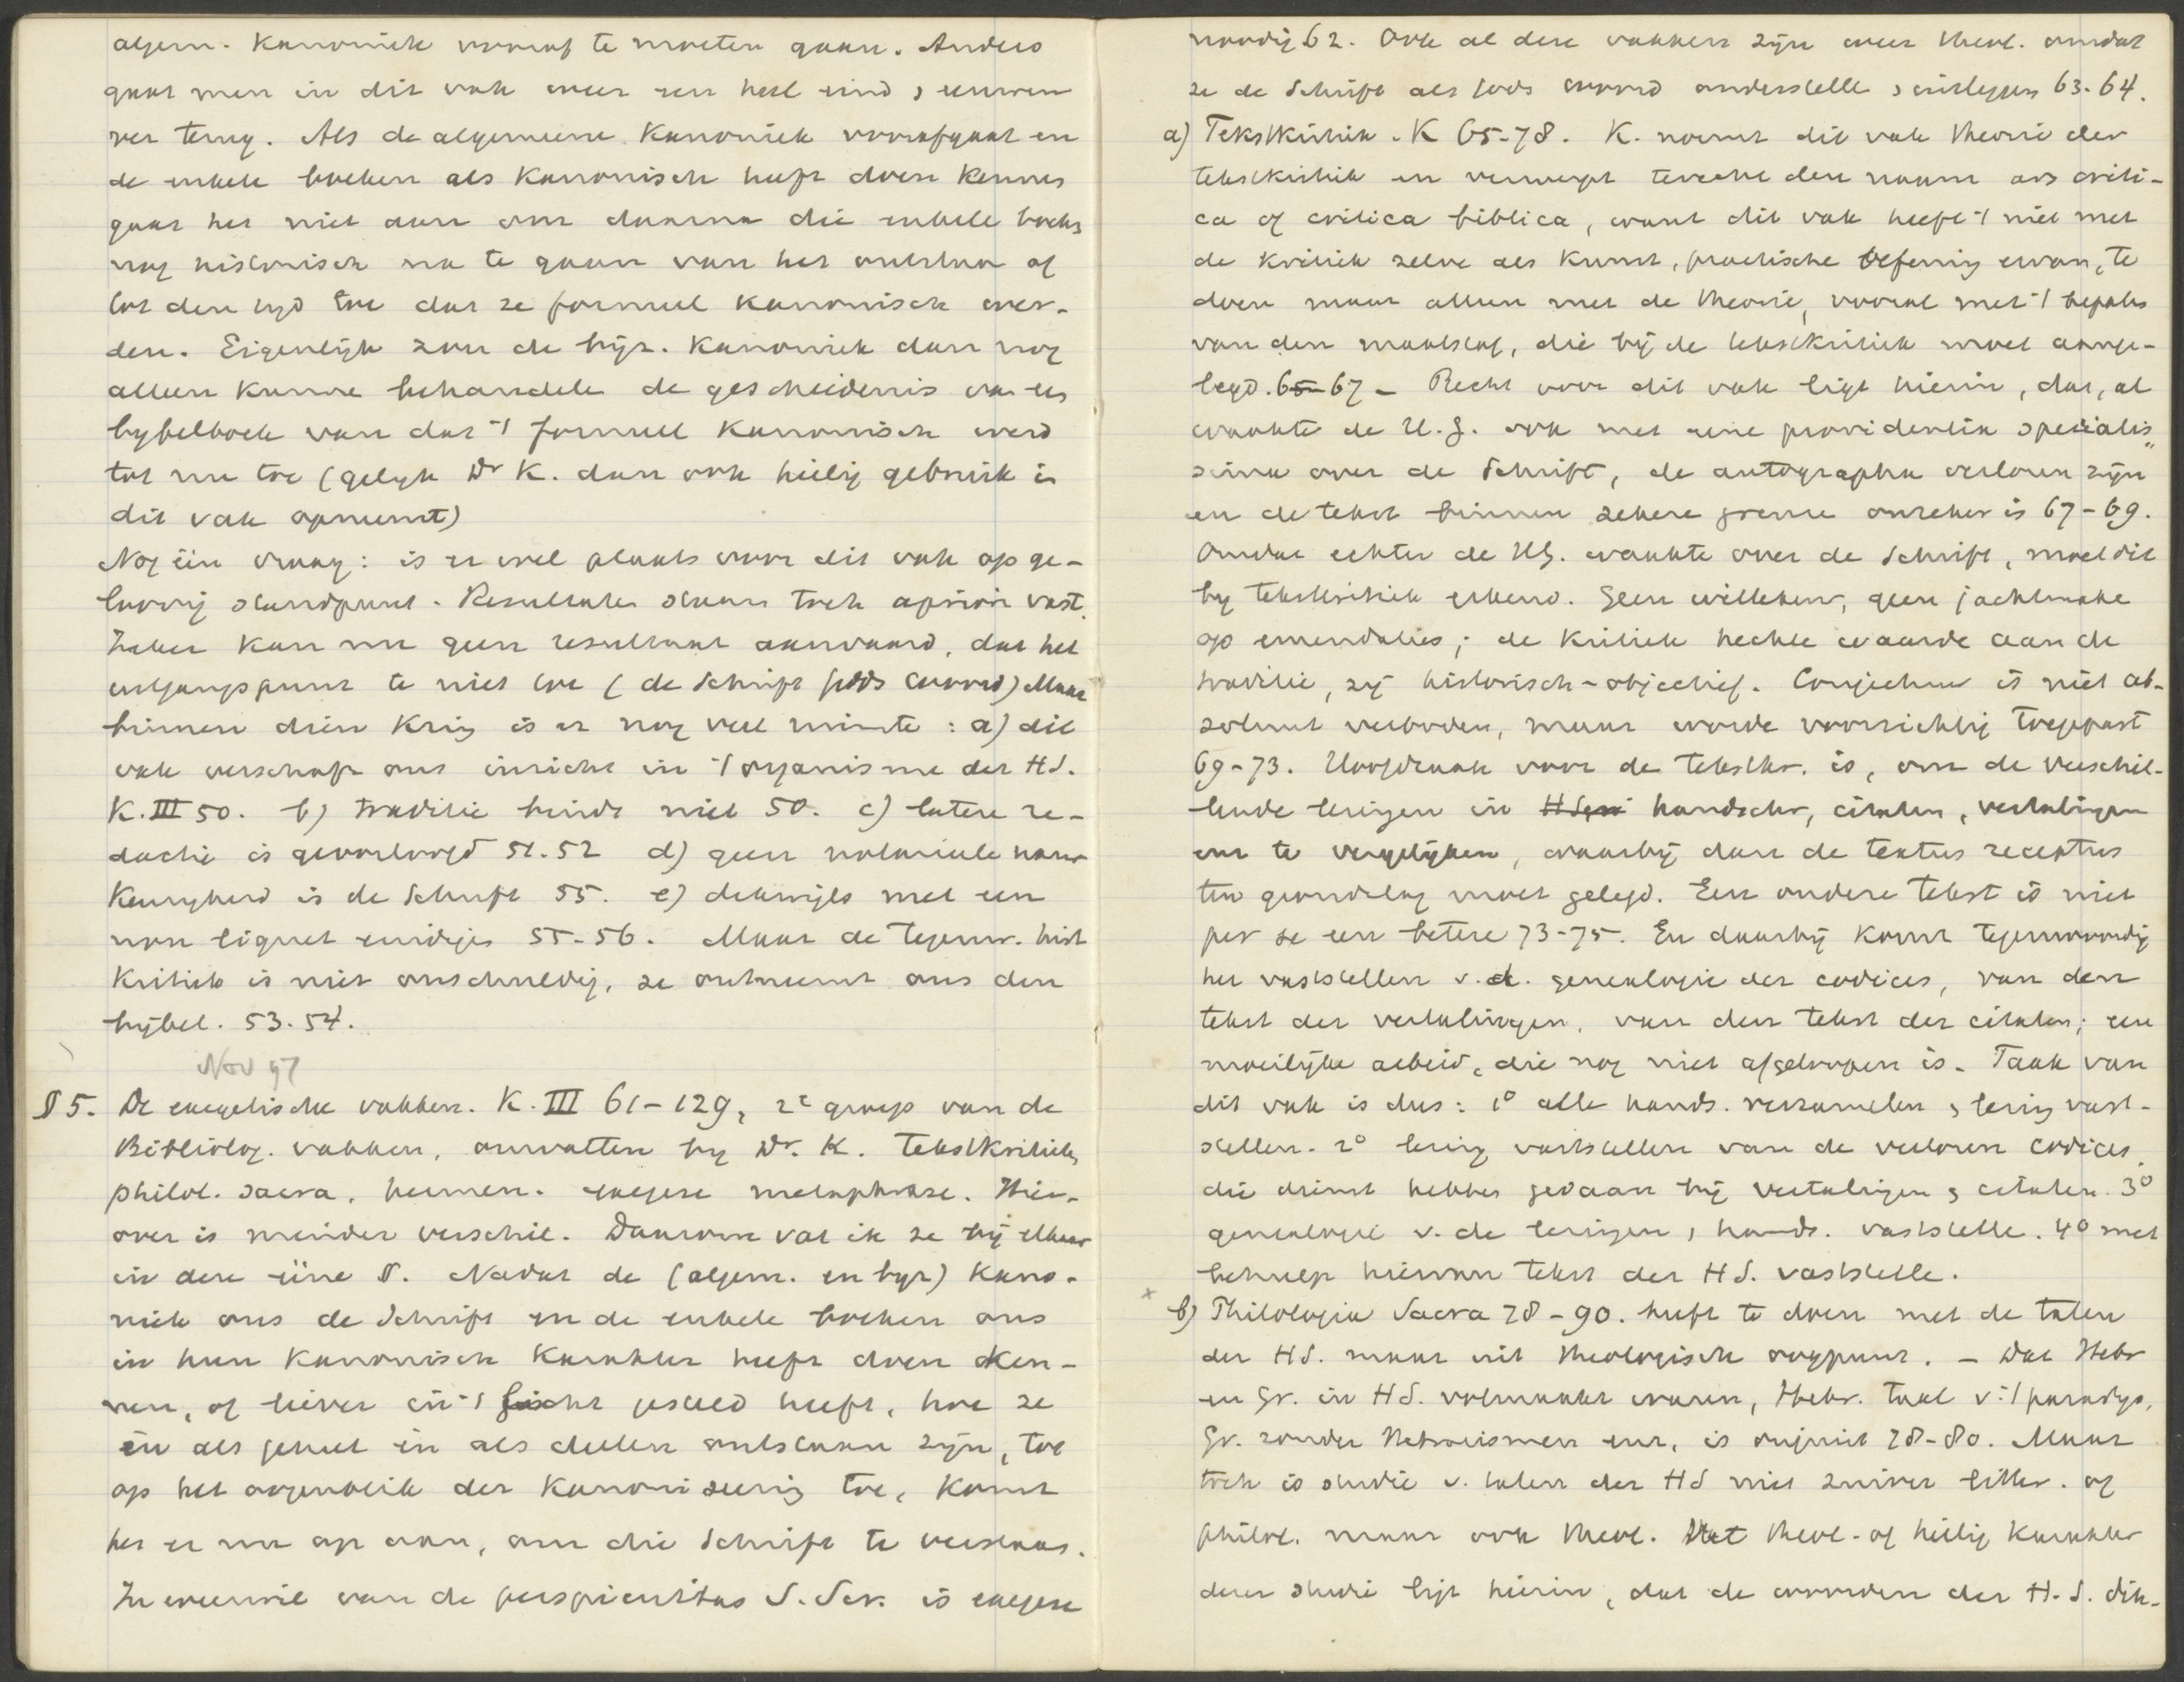 algem. Kanoniek vooraf te moeten gaan. Anders
gaat men in dit vak weer een heel eind, eeuwen
ver terug. Als de algemeene Kanoniek voorafgaat en
de enkele boeken als Kanonisch heeft doen Kennen
gaat het niet aan om daarna die enkele boeken
nog historisch na te gaan van het ontstaan af
tot den tijd toe dat ze formeel Kanonisch wer-
den. Eigenlijk zou de bijz. Kanoniek dan nog
alleen kunne behandele de geschiedenis van een
bybelboek van dat 't formeel Kanonisch werd
tot nu toe (gelyk Dr K. dan ook heilig gebruik in
dit vak opneemt)
Nog één vraag: is er wel plaats voor dit vak op ge-
loovig standpunt. Resultaten staan toch apriori vast.
Zeker kan nu geen resultaat aanvaard, dat het
uitgangspunt te niet doe (de Schrift Gods woord) Maar
binnen dien Kring is er nog veel ruimte: a) dit
vak verschaft ons inzicht in 't organisme der H.S.
K. III 50. b) traditie bindt niet 50. c) latere re-
dactie is geoorloofd 51. 52 d) geen notarieele nauw
Keurigheid in de Schrift 55. e) dikwijls met een
non liquet eindigen 55-56. Maar de tegenw. hist
Kritiek is niet onschuldig, ze ontneemt ons den
bijbel. 53. 54.
Nov 97
§ 5. De exegetische vakken. K. III 61-129, 2e groep van de
Bibliolog. vakken, omvatten by Dr. K. Tekstkritiek,
philol. sacra, hermen. exegese metaphrase. Hier-
over is minder verschil. Daarom vat ik ze bij elkaar
in deze ééne §. Nadat de (algem. en byz) Kano-
niek ons de Schrift en de enkele boeken ons
in hun Kanonisch Karakter heeft doen Ken-
nen, of liever in 't licht gesteld heeft, hoe ze
én als geheel én als deelen ontstaan zijn, tot
op het oogenblik der Kanoniseering toe, Komt
het er nu op aan, om die Schrift te verstaan.
In weerwil van de perspicuitas S. Scr. is exegese
noodig 62. Ook al deze vakken zijn weer theol. omdat
ze de Schrift als Gods woord onderstelle, uitleggen 63-64.
a) Tekstkritiek. K 65-78. K. noemt dit vak theorie der
tekstkritiek en verwerpt terecht den naam ars criti-
ca of critica biblica, want dit vak heeft 't niet met
de kritiek zelve als Kunst, practische oefening ervan, te
doen maar alleen met de theorie, vooral met 't bepalen
van den maatstaf, die bij de tekstkritiek moet aange-
legd. 65-67 - Recht voor dit vak ligt hierin, dat, al
waakte de H.G. ook met eene providentia specialis-
sima over de Schrift, de autographa verloren zijn
en de tekst binnen zekere grenze onzeker is 67-69.
Omdat echter de HG. waakte over de Schrift, moet dit
by tekstkritiek erkend. Geen willekeur, geen jachtmake
op emendaties; de Kritiek hechte waarde aan de
traditie, zij historisch-objectief. Conjectuur is niet ab-
soluut verboden, maar worde voorzichtig toegepast
69-73. Hoofdzaak voor de tekstkr. is, om de verschil-
lende lezingen in handschr, citaten, vertalingen
enz te vergelijken, waarbij dan de textus receptus
ten grondslag moet gelegd. Een andere tekst is niet
per se een betere 73-75. En daarbij komt tegenwoordig
het vaststellen v. d. genealogie der codices, van den
tekst der vertalingen, van den tekst der citaten; een
moeilijke arbeid, die nog niet afgeloopen is. Taak van
dit vak is dus: 1° alle hands. verzamelen, lezing vast-
stellen. 2° lezing vaststellen van de verloren codices,
die dienst hebben gedaan bij vertalingen, citaten. 3°
genealogie v. de lezingen, hands. vaststelle. 4° met
behulp hiervan tekst der H.S. vaststelle.
b) Philologia Sacra 78-90. heeft te doen met de talen
der H.S. maar uit theologisch oogpunt. - Dat Hebr
en Gr. in H.S. volmaakt waren, Hebr. taal v. 't paradys,
Gr. zonder Hebraismen enz, is onjuist 78-80. Maar
toch is studie v. talen der HS niet zuiver litter. of
philol. maar ook theol. Het theol- of heilig Karakter
dezer studie ligt hierin, dat de woorden der H.S. dik-